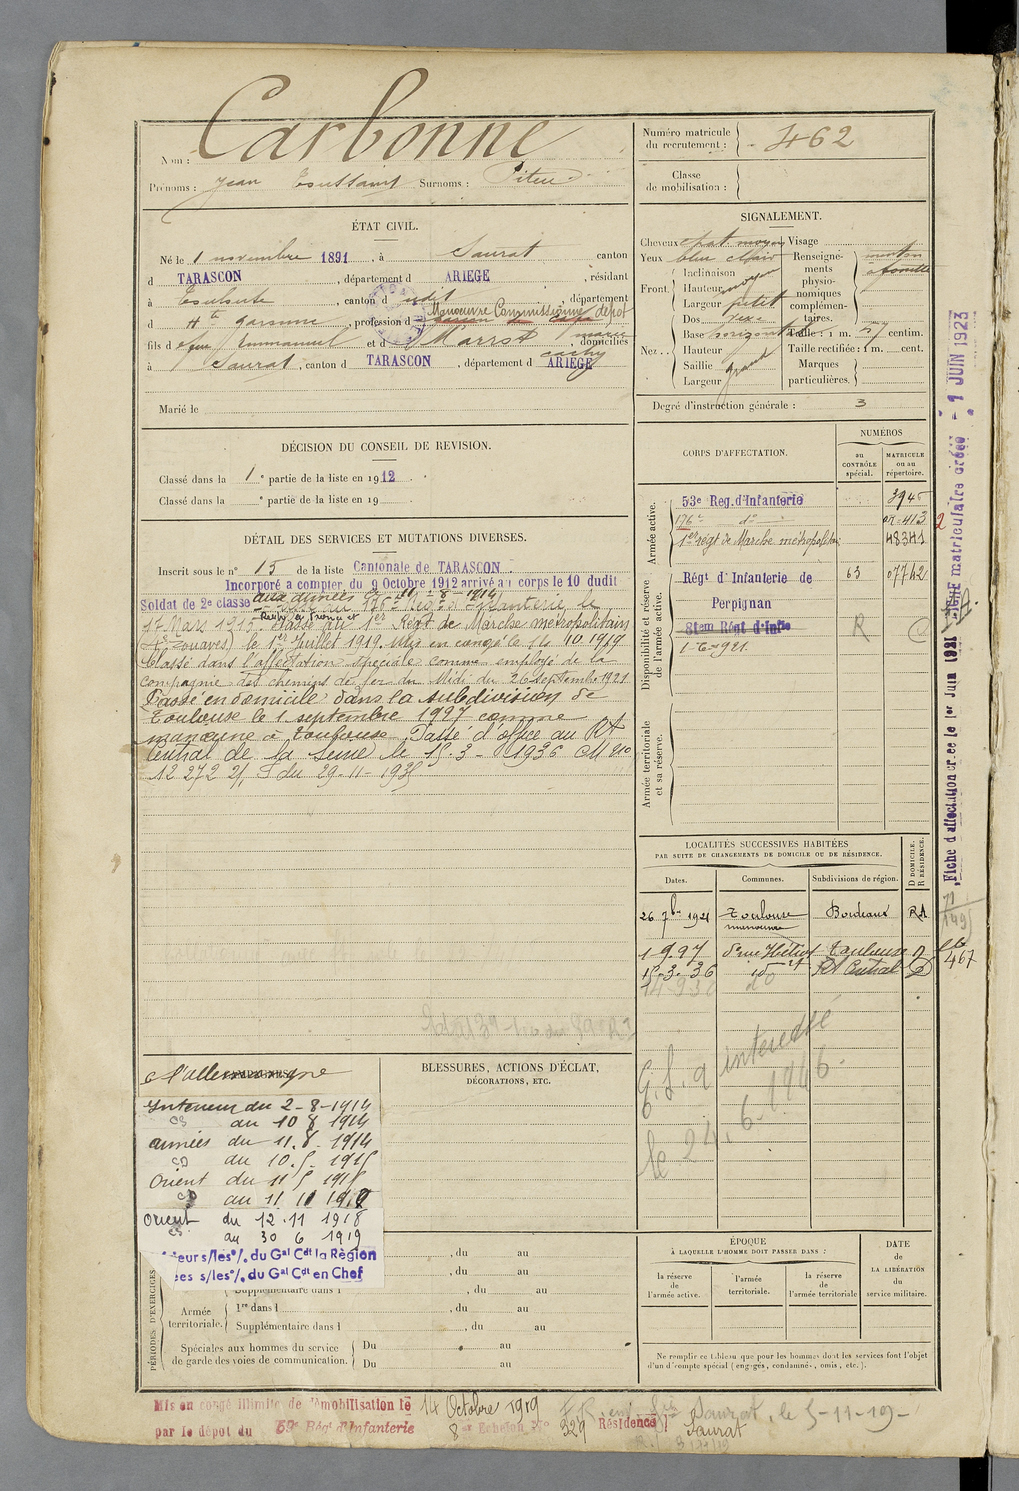 Carbonne
Nom :
Prénoms : Jean Toussaint Surnoms : Piteu
Numéro matricule
du recrutement : 462
Classe
de mobilisation :
ÉTAT CIVIL.
Né le 1 novembre 1891, à Saurat, canton
d TARASCON, département d ARIEGE, résidant
à Toulouse, canton d, département
d Hte Garonne, profession d Manoeuvre Commissionné dépôt
fils d Emmanuel et d, domiciliés
à Saurat, canton d TARASCON, département d ARIEGE
Marié le
SIGNALEMENT.
Cheveux chat. moyen Visage
Yeux bleu clair Renseigne-
ments
physio-
nomiques
complémen-
taires.
menton
à fossette
Front. Inclinaison
Hauteur moyen
Largeur petit
Nez.. Dos vexe
Base horizontale Taille : 1 m. centim.
Hauteur Taille rectifiée : 1 m. cent.
Saillie grand Marques
Largeur particulières.
Degré d'instruction générale : 3
DÉCISION DU CONSEIL DE REVISION.
Classé dans la 1e partie de la liste en 1912.
Classé dans la e partie de la liste en 19
DÉTAIL DES SERVICES ET MUTATIONS DIVERSES.
Inscrit sous le n° 15 de la liste Cantonale de TARASCON.
Incorporé a compter du 9 Octobre 1912 arrivé au corps le 10 dudit
Soldat de 2e classe aux armées le 11-8-1914
Passé au 176e Rég. d'Infanterie le
17 Mars 1915. Passé au 1er Régt de Marche métropolitain
(4e zouaves) le 1er Juillet 1919. Mis en congé le 14.10.1919
Classé dans l'affectation spéciale comme employé de la
compagnie des chemins de fer du Midi du 26 septembre 1921
Passé en domicile dans la subdivision de
Toulouse le 1 septembre 1927 comme
manoeuvre à Toulouse. Passé d'office au RA
Central de la Seine le 15-3-1936 CM n°
12 272 2/1 S du 29-11-1935
CORPS D'AFFECTATION.
NUMÉROS
au
CONTRÔLE
spécial.
MATRICULE
ou au
répertoire.
Armée active.
53e Reg. d'Infanterie 3945
176e do 02.413
1er régt de Marche métropolitain 48341
Disponibilité et réserve
de l'armée active.
Régt d'Infanterie de 63 07742
Perpignan
81em Régt d'Infie R
1-6-1921.
Armée territoriale
et sa réserve.
Fiche d'affectation créée le 1er Juin 1921
Fiche matriculaire créée 1 JUIN 1923
LOCALITÉS SUCCESSIVES HABITÉES
PAR SUITE DE CHANGEMENTS DE DOMICILE OU DE RÉSIDENCE.
Dates. Communes. Subdivisions de région. D DOMICILE. R RÉSIDENCE.
26 7bre 1921 Toulouse Bordeaux RA
manoeuvre
1 9 27 Toulouse D
15-3-36 do RA Central D
467
intéressé
le 24.6.1946.
à l'allemagne
Intérieur du 2-8-1914
CS au 10 8 1914
armées du 11.8.1914
CD au 10.5.1915
Orient du 11 5 1915
CD au 11 11 1918
Orient du 12.11 1918
CS au 30 6 1919
s/les°/. du Gal Cdt la Règion
s/les°/. du Gal Cdt en Chef
BLESSURES, ACTIONS D'ÉCLAT,
DÉCORATIONS, ETC.
PÉRIODES D'EXERCICES
, du au
, du au
Supplémentaire dans l , du au
Armée
territoriale. 1re dans l , du au
Supplémentaire dans l , du au
Spéciales aux hommes du service
de garde des voies de communication. Du au
Du au
ÉPOQUE
À LAQUELLE L'HOMME DOIT PASSER DANS :
la réserve
de
l'armée active.
l'armée
territoriale.
la réserve
de
l'armée territoriale
DATE
de
LA LIBÉRATION
du
service militaire.
Ne remplir ce tableau que pour les hommes dont les services font l'objet
d'un décompte spécial (engagés, condamnés, omis, etc.).
Mis en congé illimité de démobilisation le 14 Octobre 1919
par le dépot du 59e Régt d'Infanterie 8er Echelon N° 329 Résidence
Saurat, le 5-11-19
Saurat